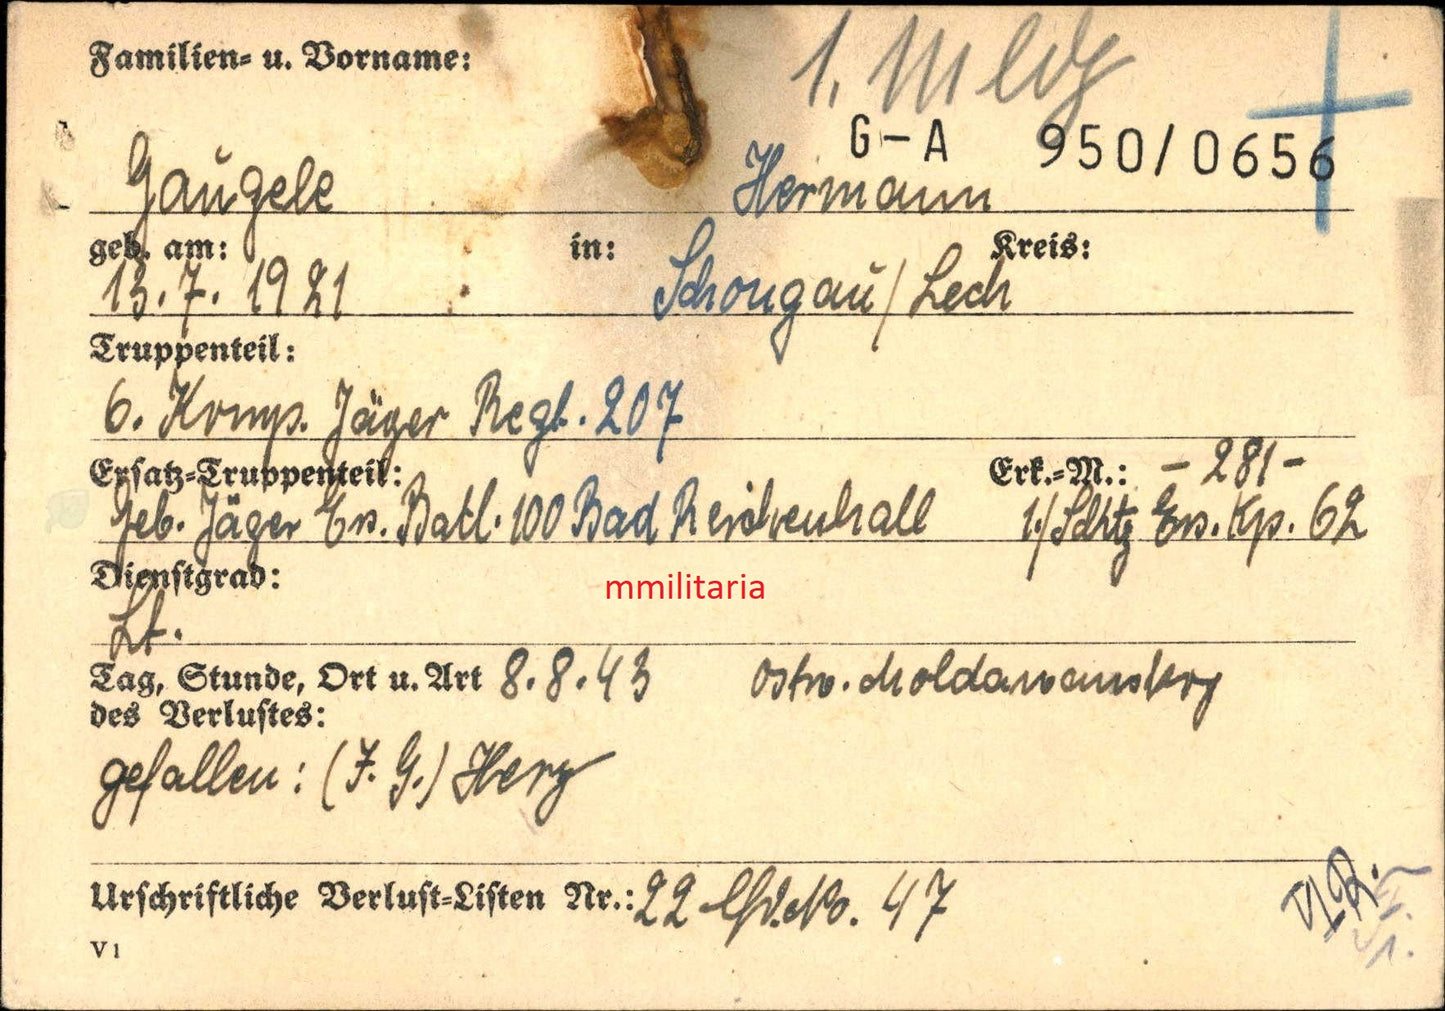 Familien- u. Vorname:
1. Meldg
G-A 950/0656
Gaugele Hermann
geb. am: in: Kreis:
13.7. 1921 Schongau/Lech
Truppenteil:
6. Komp. Jäger Regt. 207
Ersatz-Truppenteil: Erk.-M.: - 281 -
Geb. Jäger Ers. Batl. 100 Bad Reichenhall 1./Schtz Ers. Kp. 62
Dienstgrad:
mmilitaria
Lt.
Tag, Stunde, Ort u. Art 8.8.43 ostw. Moldawanskoj
des Verlustes:
gefallen: (J. G.) Herz
Urschriftliche Verlust-Listen Nr.: 22 lfd. No. 47
V 1